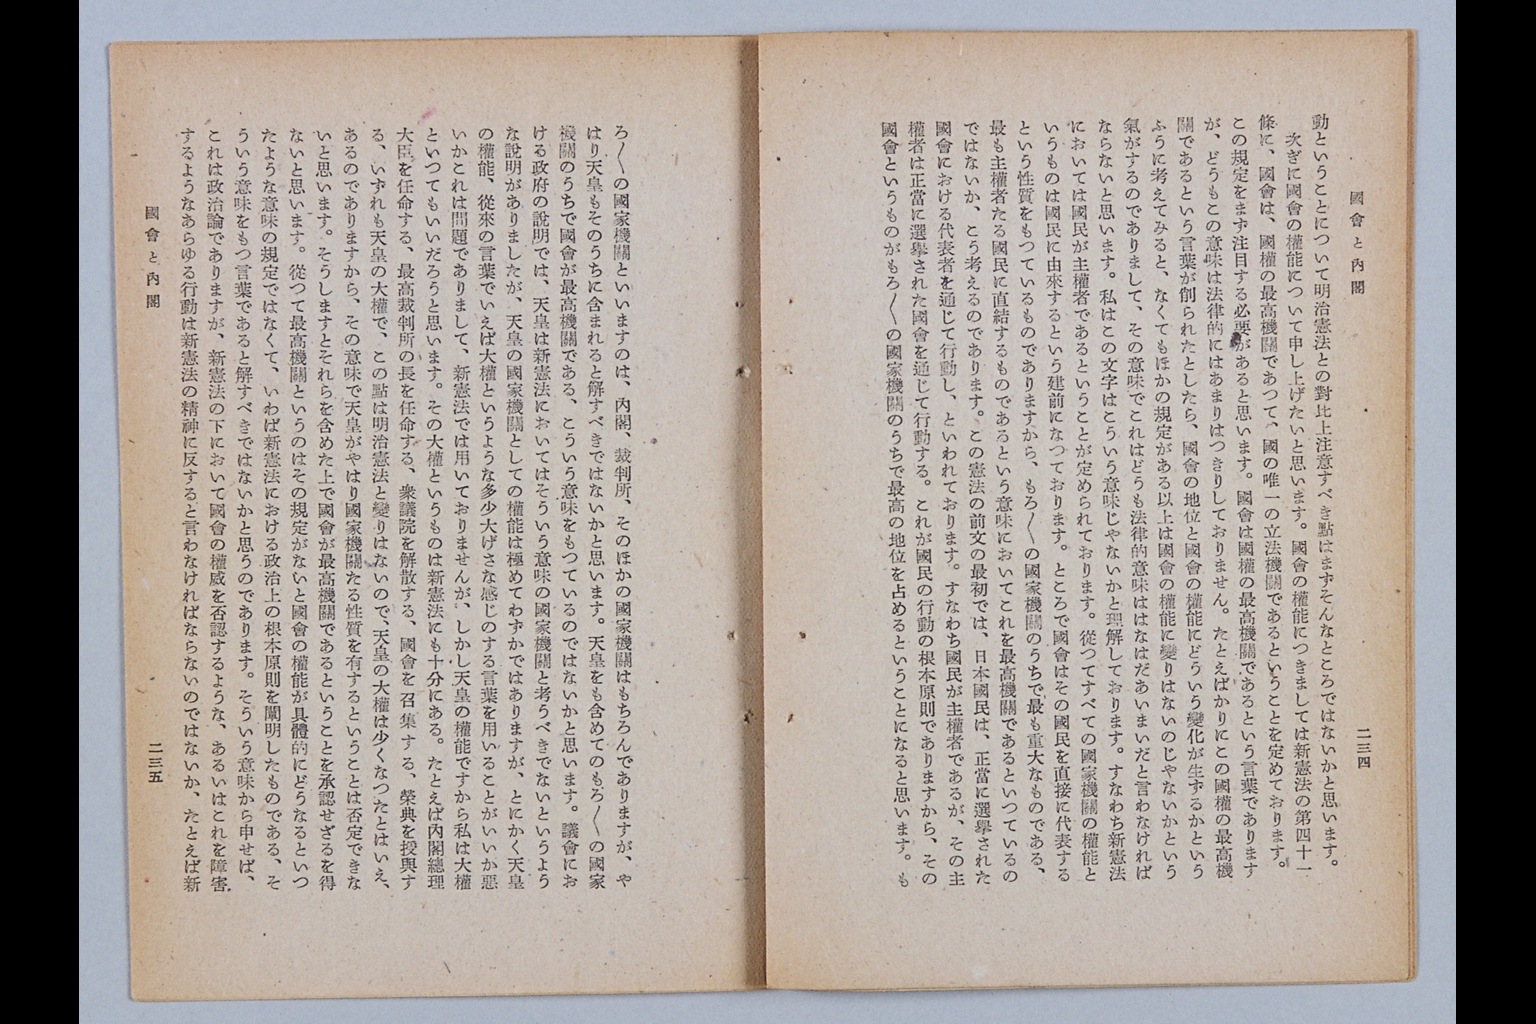 國會と內閣
二三四
動ということについて明治憲法との對比上注意すべき點はまずそんなところではないかと思います。
次ぎに國會の權能について申し上げたいと思います。國會の權能につきましては新憲法の第四十一
條に、國會は、國權の最高機關であつて、國の唯一の立法機關であるということを定めております。
この規定をまず注目する必要があると思います。國會は國權の最高機關であるという言葉であります
が、どうもこの意味は法律的にはあまりはつきりしておりません。たとえばかりにこの國權の最高機
關であるという言葉が創られたとしたら、國會の地位と國會の權能にどういう變化が生ずるかという
ふうに考えてみると、なくてもほかの規定がある以上は國會の權能に變りはないのじやないかという
氣がするのでありまして、その意味でこれはどうも法律的意味ははなはだあいまいだと言わなければ
ならないと思います。私はこの文字はこういう意味じやないかと理解しております。すなわち新憲法
においては國民が主權者であるということが定められております。從つてすべての國家機關の權能と
いうものは國民に由來するという建前になつております。ところで國會はその國民を直接に代表する
という性質をもつているものでありますから、もろ〱の國家機關のうちで最も重大なものである、
最も主權者たる國民に直結するものであるという意味においてこれを最高機關であるといつているの
ではないか、こう考えるのであります。この憲法の前文の最初では、日本國民は、正當に選擧された
國會における代表者を通じて行動し、といわれております。すなわち國民が主權者であるが、その主
權者は正當に選擧された國會を通じて行動する。これが國民の行動の根本原則でありますから、その
國會というものがもろ〱の國家機關のうちで最高の地位を占めるということになると思います。も
ろ〱の國家機關といいますのは、內閣、裁判所、そのほかの國家機關はもちろんでありますが、や
はり天皇もそのうちに含まれると解すべきではないかと思います。天皇をも含めてのもろ〱の國家
機關のうちで國會が最高機關である、こういう意味をもつているのではないかと思います。議會にお
ける政府の說明では、天皇は新憲法においてはそういう意味の國家機關と考うべきでないというよう
な說明がありましたが、天皇の國家機關としての權能は極めてわずかではありますが、とにかく天皇
の權能、從來の言葉でいえば大權というような多少大げさな感じのする言葉を用いることがいいか惡
いかこれは問題でありまして、新憲法では用いておりませんが、しかし天皇の權能ですから私は大權
といつてもいいだろうと思います。その大權というものは新憲法にも十分にある。たとえば內閣總理
大臣を任命する、最高裁判所の長を任命する、衆議院を解散する、國會を召集する、榮典を授與す
る、いずれも天皇の大權で、この點は明治憲法と變りはないので、天皇の大權は少くなつたとはいえ、
あるのでありますから、その意味で天皇がやはり國家機關たる性質を有するということは否定できな
いと思います。そうしますとそれらを含めた上で國會が最高機關であるということを承認せざるを得
ないと思います。從つて最高機關というのはその規定がないと國會の權能が具體的にどうなるといつ
たような意味の規定ではなくて、いわば新憲法における政治上の根本原則を闡明したものである、そ
ういう意味をもつ言葉であると解すべきではないかと思うのであります。そういう意味から申せば、
これは政治論でありますが、新憲法の下において國會の權威を否認するような、あるいはこれを障害
するようなあらゆる行動は新憲法の精神に反すると言わなければならないのではないか、たとえば新
國會と內閣
二三五